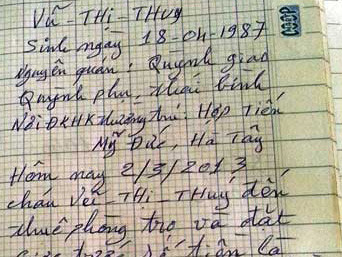 Vũ - Thị - Thuý
COOP
Sinh ngày 18-04-1987
Nguyên quán: Quỳnh giao
Quỳnh phụ, thái bình
Nơi ĐKHK thường trú: Hợp Tiến
Mỹ Đức, Hà Tây
Hôm nay 2/3/2013
cháu Vũ - Thị - Thuý đến
thuê phòng trọ và đặt
tiền là